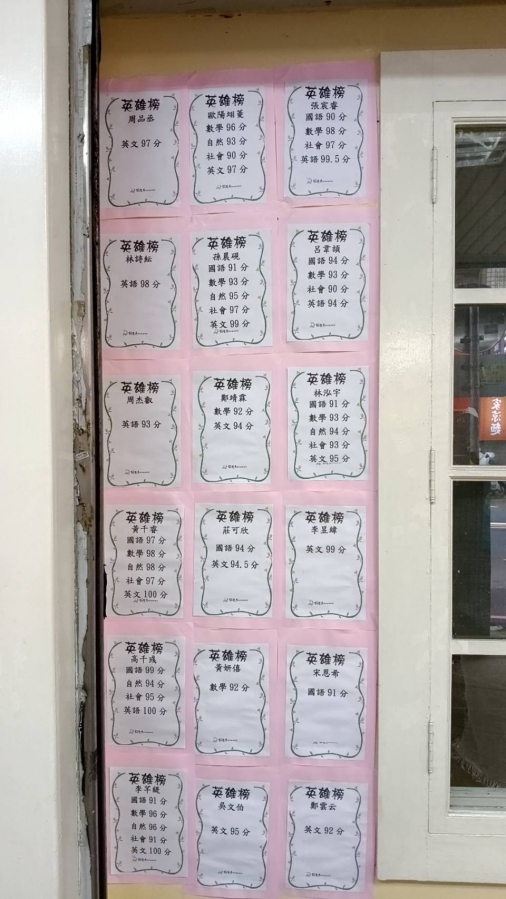 英雄榜
周品丞
英文 97 分
英雄榜
歐陽翊蓁
數學 96 分
自然 93 分
社會 90 分
英文 97 分
英雄榜
張宸睿
國語 90 分
數學 98 分
社會 97 分
英語 99.5 分
英雄榜
林詩紜
英語 98 分
英雄榜
孫晨硯
國語 91 分
數學 93 分
自然 95 分
社會 97 分
英文 99 分
英雄榜
呂韋頡
國語 94 分
數學 93 分
社會 90 分
英語 94 分
英雄榜
周杰叡
英語 93 分
英雄榜
鄭靖霖
數學 92 分
英文 94 分
英雄榜
林泓宇
國語 91 分
數學 93 分
自然 94 分
社會 93 分
英文 95 分
英雄榜
黃千睿
國語 97 分
數學 98 分
自然 98 分
社會 97 分
英文 100 分
英雄榜
莊可欣
國語 94 分
英文 94.5 分
英雄榜
李昱緯
英文 99 分
英雄榜
高千彧
國語 99 分
自然 94 分
社會 95 分
英語 100 分
英雄榜
黃妍僖
數學 92 分
英雄榜
宋恩希
國語 91 分
英雄榜
李芊緹
國語 91 分
數學 96 分
自然 96 分
社會 91 分
英文 100 分
英雄榜
吳文伯
英文 95 分
英雄榜
鄭雲云
英文 92 分